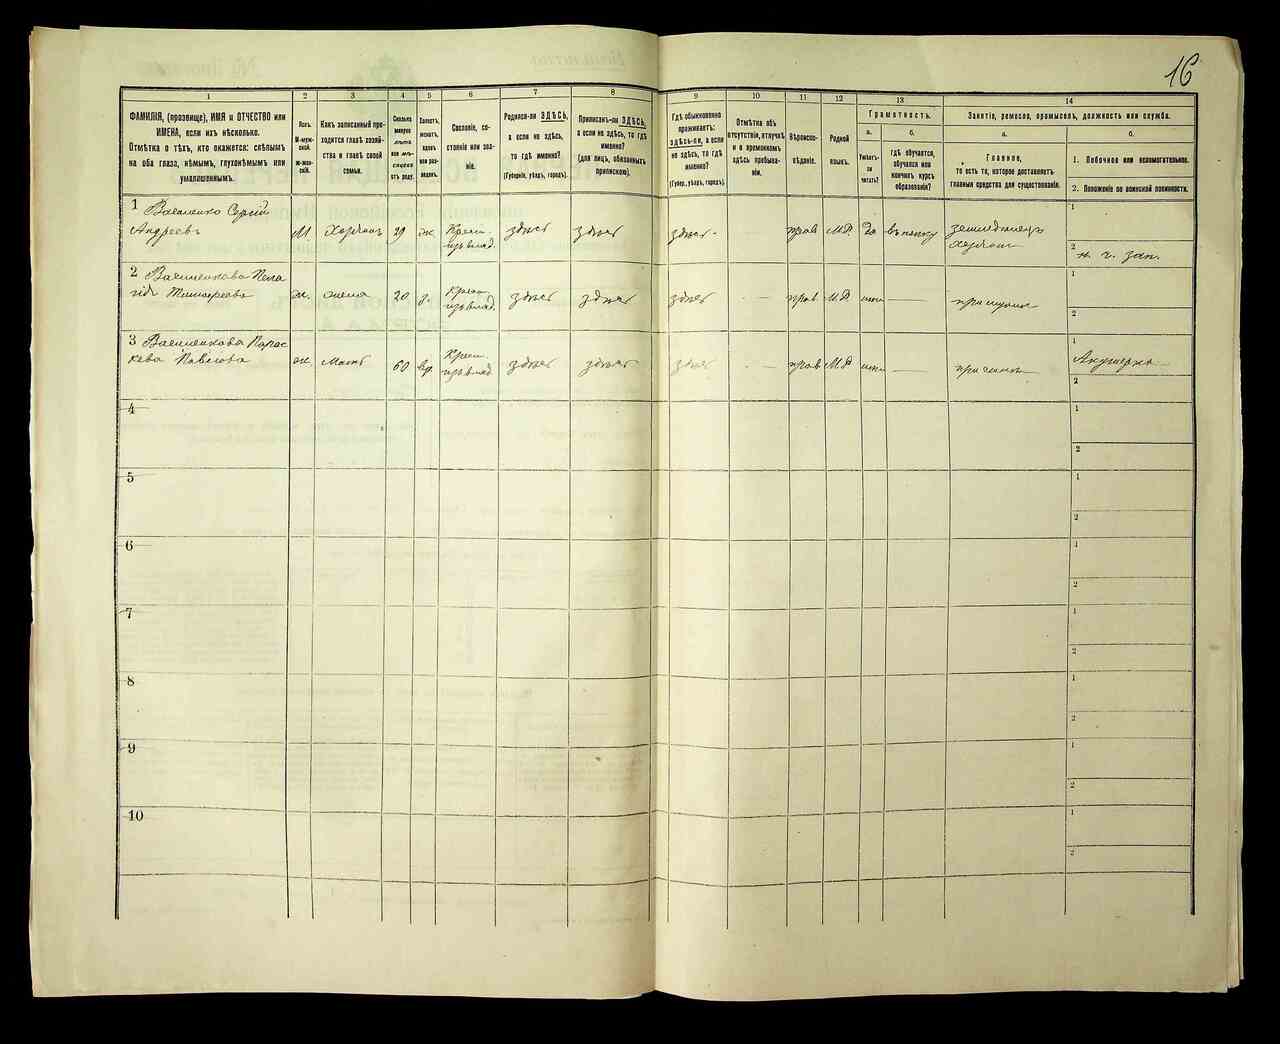 16
1
2
3
4
5
6
7
8
9
10
11
12
13
14
ФАМИЛІЯ, (прозвище), ИМЯ и ОТЧЕСТВО или
ИМЕНА, если ихъ нѣсколько.
Отмѣтка о тѣхъ, кто окажется: слѣпымъ
на оба глаза, нѣмымъ, глухонѣмымъ или
умалишеннымъ.
Полъ.
М-муж-
ской.
Ж-жен-
скій.
Какъ записанный при-
ходится главѣ хозяй-
ства и главѣ своей
семьи.
Сколько
минуло
лѣтъ
или мѣ-
сяцевъ
отъ роду.
Холостъ,
женатъ,
вдовъ
или раз-
веденъ.
Сословіе, со-
стояніе или зва-
ніе.
Родился-ли ЗДѢСЬ,
а если не здѣсь,
то гдѣ именно?
(Губернія, уѣздъ, городъ).
Приписанъ-ли ЗДѢСЬ,
а если не здѣсь, то гдѣ
именно?
(для лицъ, обязанныхъ
припискою).
Гдѣ обыкновенно
проживаетъ:
ЗДѢСЬ-ли, а если
не здѣсь, то гдѣ
именно?
(Губер., уѣздъ, городъ).
Отмѣтка объ
отсутствіи, отлучкѣ
и о временномъ
здѣсь пребыва-
ніи.
Вѣроиспо-
вѣданіе.
Родной
языкъ.
Грамотность.
а.
б.
Умѣетъ-
ли
читать?
гдѣ обучается,
обучался или
кончилъ курсъ
образованія?
Занятіе, ремесло, промыселъ, должность или служба.
а.
б.
Главное,
то есть то, которое доставляетъ
главныя средства для существованія.
1. Побочное или вспомогательное.
2. Положеніе по воинской повинности.
1 Василенко Сергій
Андреевъ
М
Хозяинъ
29
ж
Крест.
изъ влад.
здѣсь
здѣсь
здѣсь
—
прав
М.Р.
да
въ полку
земледѣлецъ
хозяинъ
1
2
н. ч. зап.
2 Василенкова Пела
гія Тимофеева
ж.
жена
20
з.
Крест.
изъ влад.
здѣсь
здѣсь
здѣсь
—
прав
М.Р.
—
1
2
3 Василенкова Парас
кева Павлова
ж.
Мать
60
вд.
Крест.
изъ влад.
здѣсь
здѣсь
здѣсь
—
прав
М.Р.
—
1
Акушерка
2
4
1
2
5
1
2
6
1
2
7
1
2
8
1
2
9
1
2
10
1
2